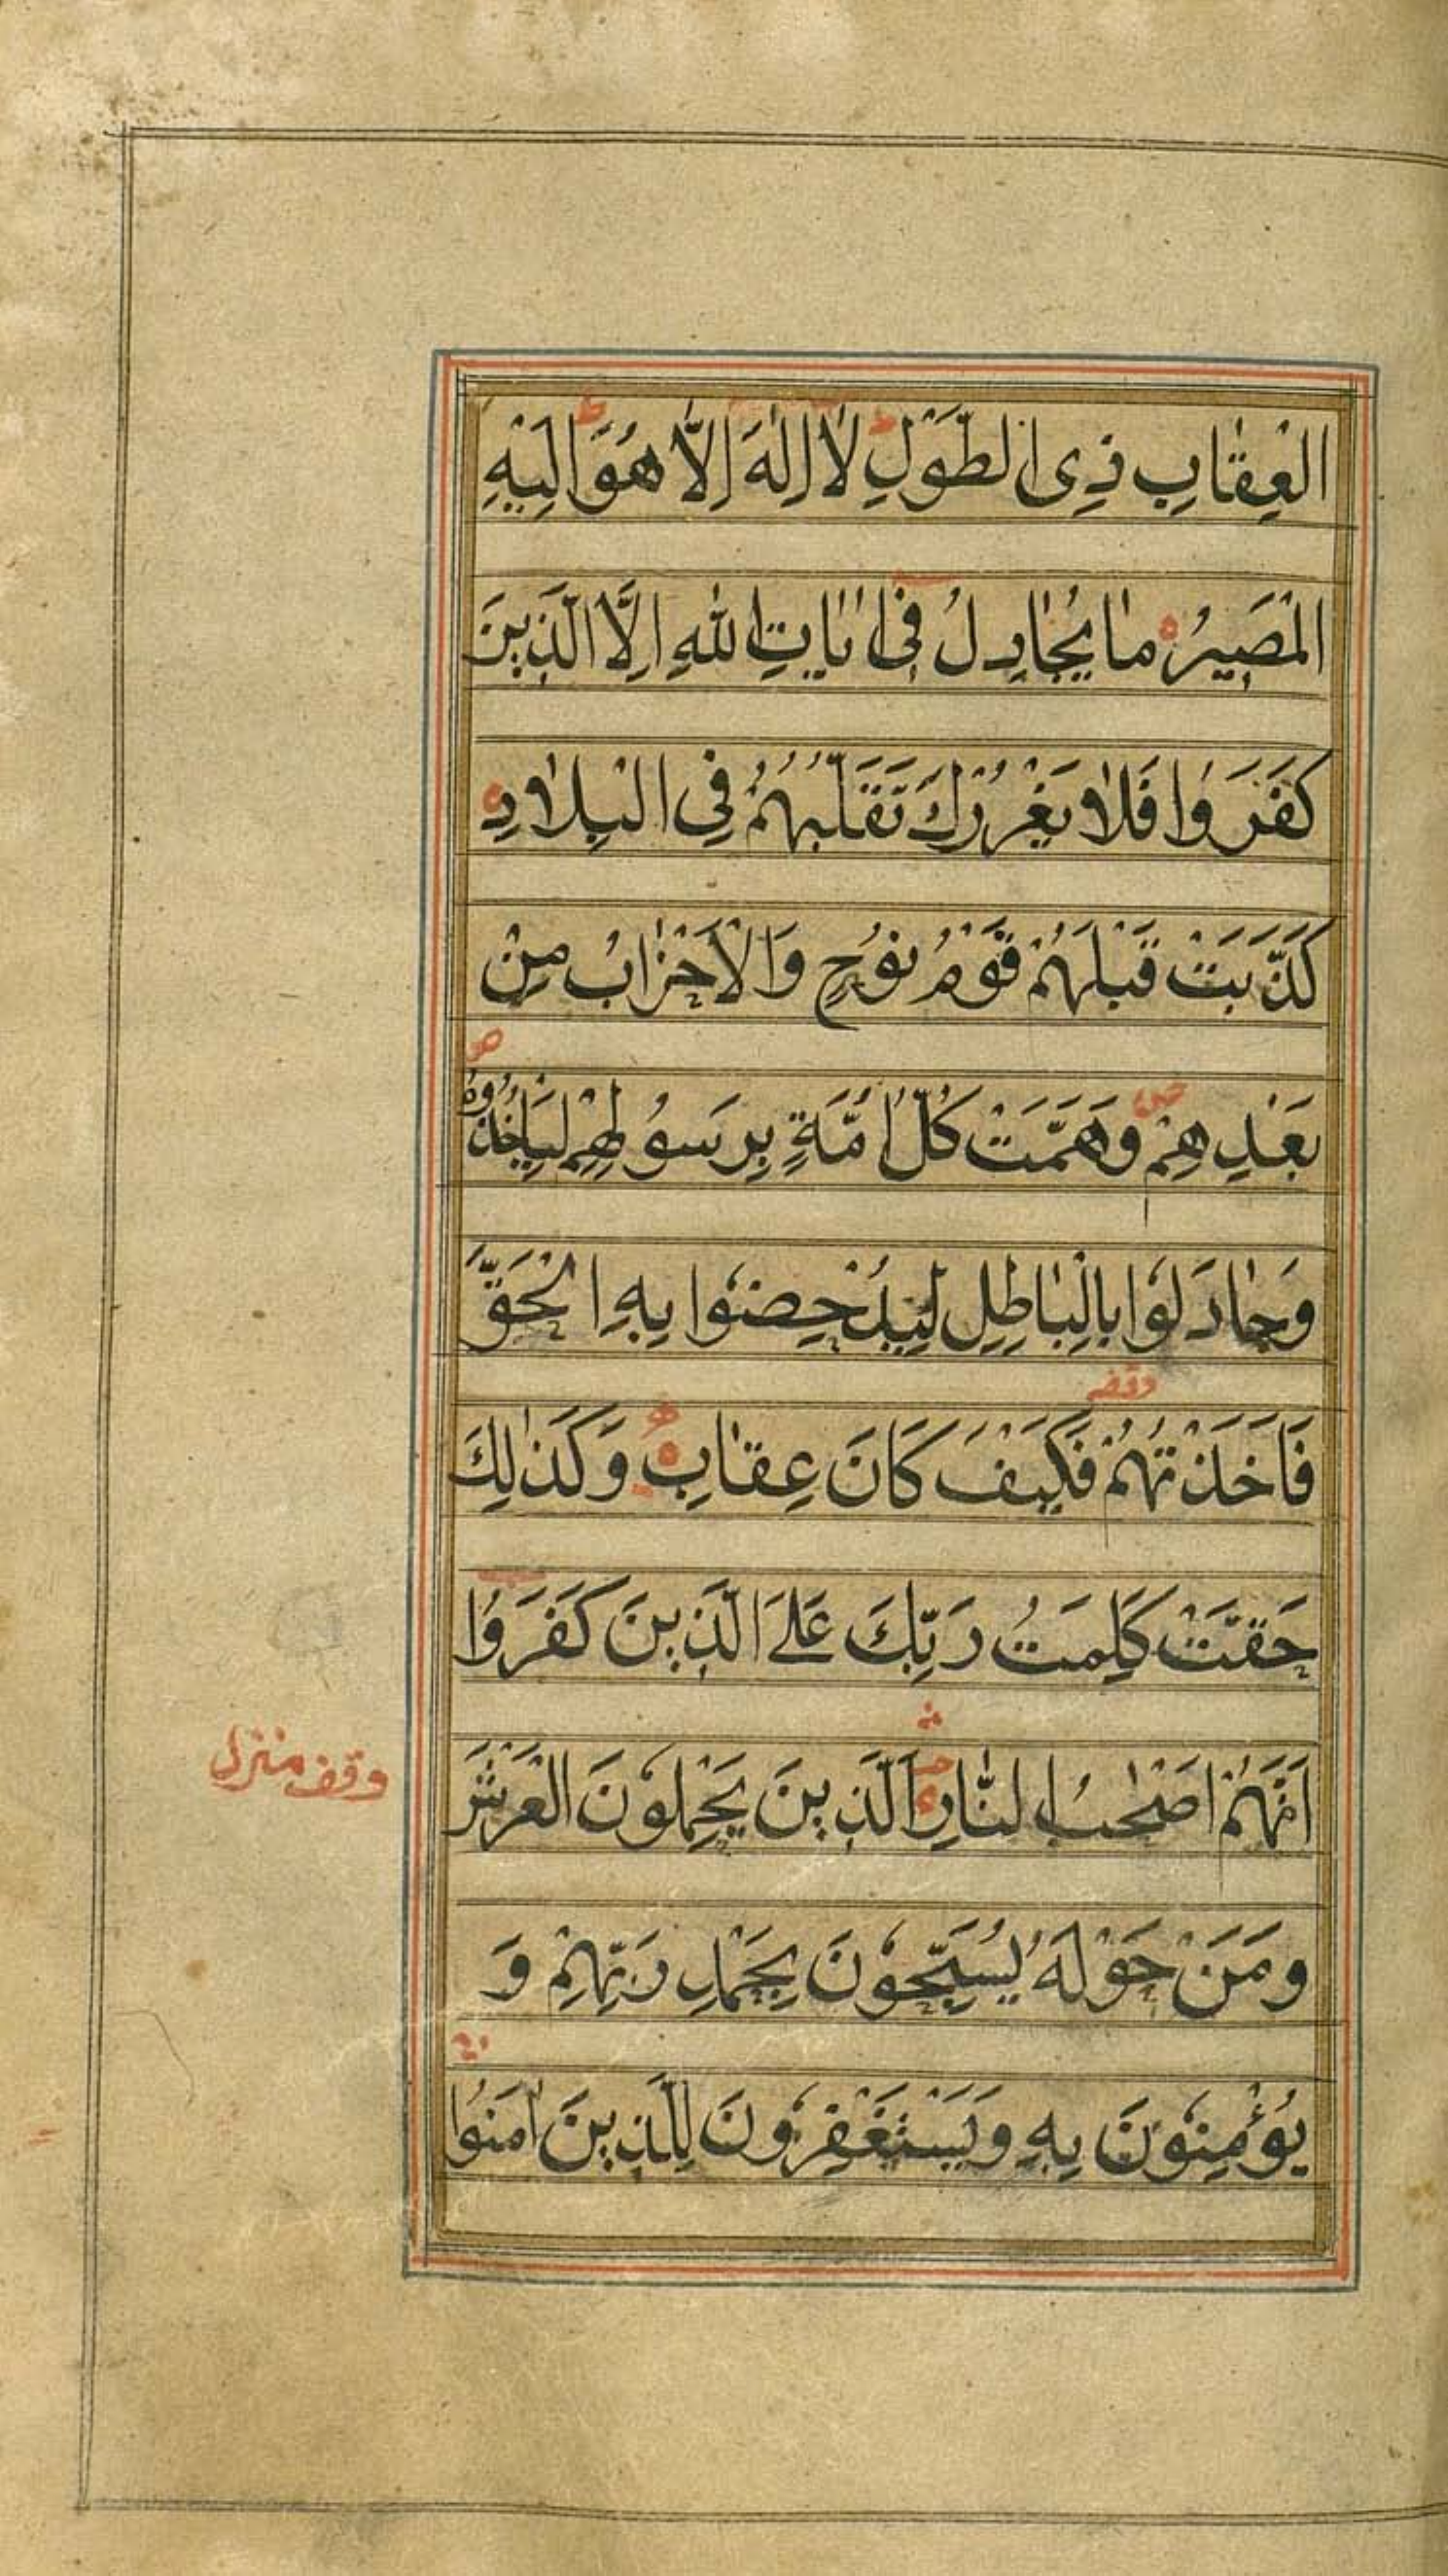 الْعِقَابِ ذِى الطَّوْلِ ط لَا اِلٰهَ اِلَّا هُوَ ط اِلَيْهِ
الْمَصِيْرُ ه مَا يُجَادِلُ فِى اٰيَاتِ اللّٰهِ اِلَّا الَّذِيْنَ
كَفَرُوْا فَلَا يَغْرُرْكَ تَقَلُّبُهُمْ فِى الْبِلَادِ ه
كَذَّبَتْ قَبْلَهُمْ قَوْمُ نُوْحٍ وَالْاَحْزَابُ مِنْ
بَعْدِهِمْ ص وَهَمَّتْ كُلُّ اُمَّةٍ بِرَسُوْلِهِمْ لِيَاْخُذُوْهُ ص
وَجَادَلُوْا بِالْبَاطِلِ لِيُدْحِضُوْا بِهِ الْحَقَّ
فَاَخَذْتُهُمْ وقفه فَكَيْفَ كَانَ عِقَابِ ه وَكَذٰلِكَ
حَقَّتْ كَلِمَتُ رَبِّكَ عَلَى الَّذِيْنَ كَفَرُوْا
اَنَّهُمْ اَصْحٰبُ النَّارِ ه اَلَّذِيْنَ يَحْمِلُوْنَ الْعَرْشَ
وقف منزل
وَمَنْ حَوْلَهٗ يُسَبِّحُوْنَ بِحَمْدِ رَبِّهِمْ وَ
يُؤْمِنُوْنَ بِهٖ وَيَسْتَغْفِرُوْنَ لِلَّذِيْنَ اٰمَنُوْا